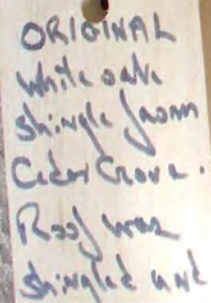 ORIGINAL
white oak
shingle from
Cedar Grove.
Roof was
shingled and